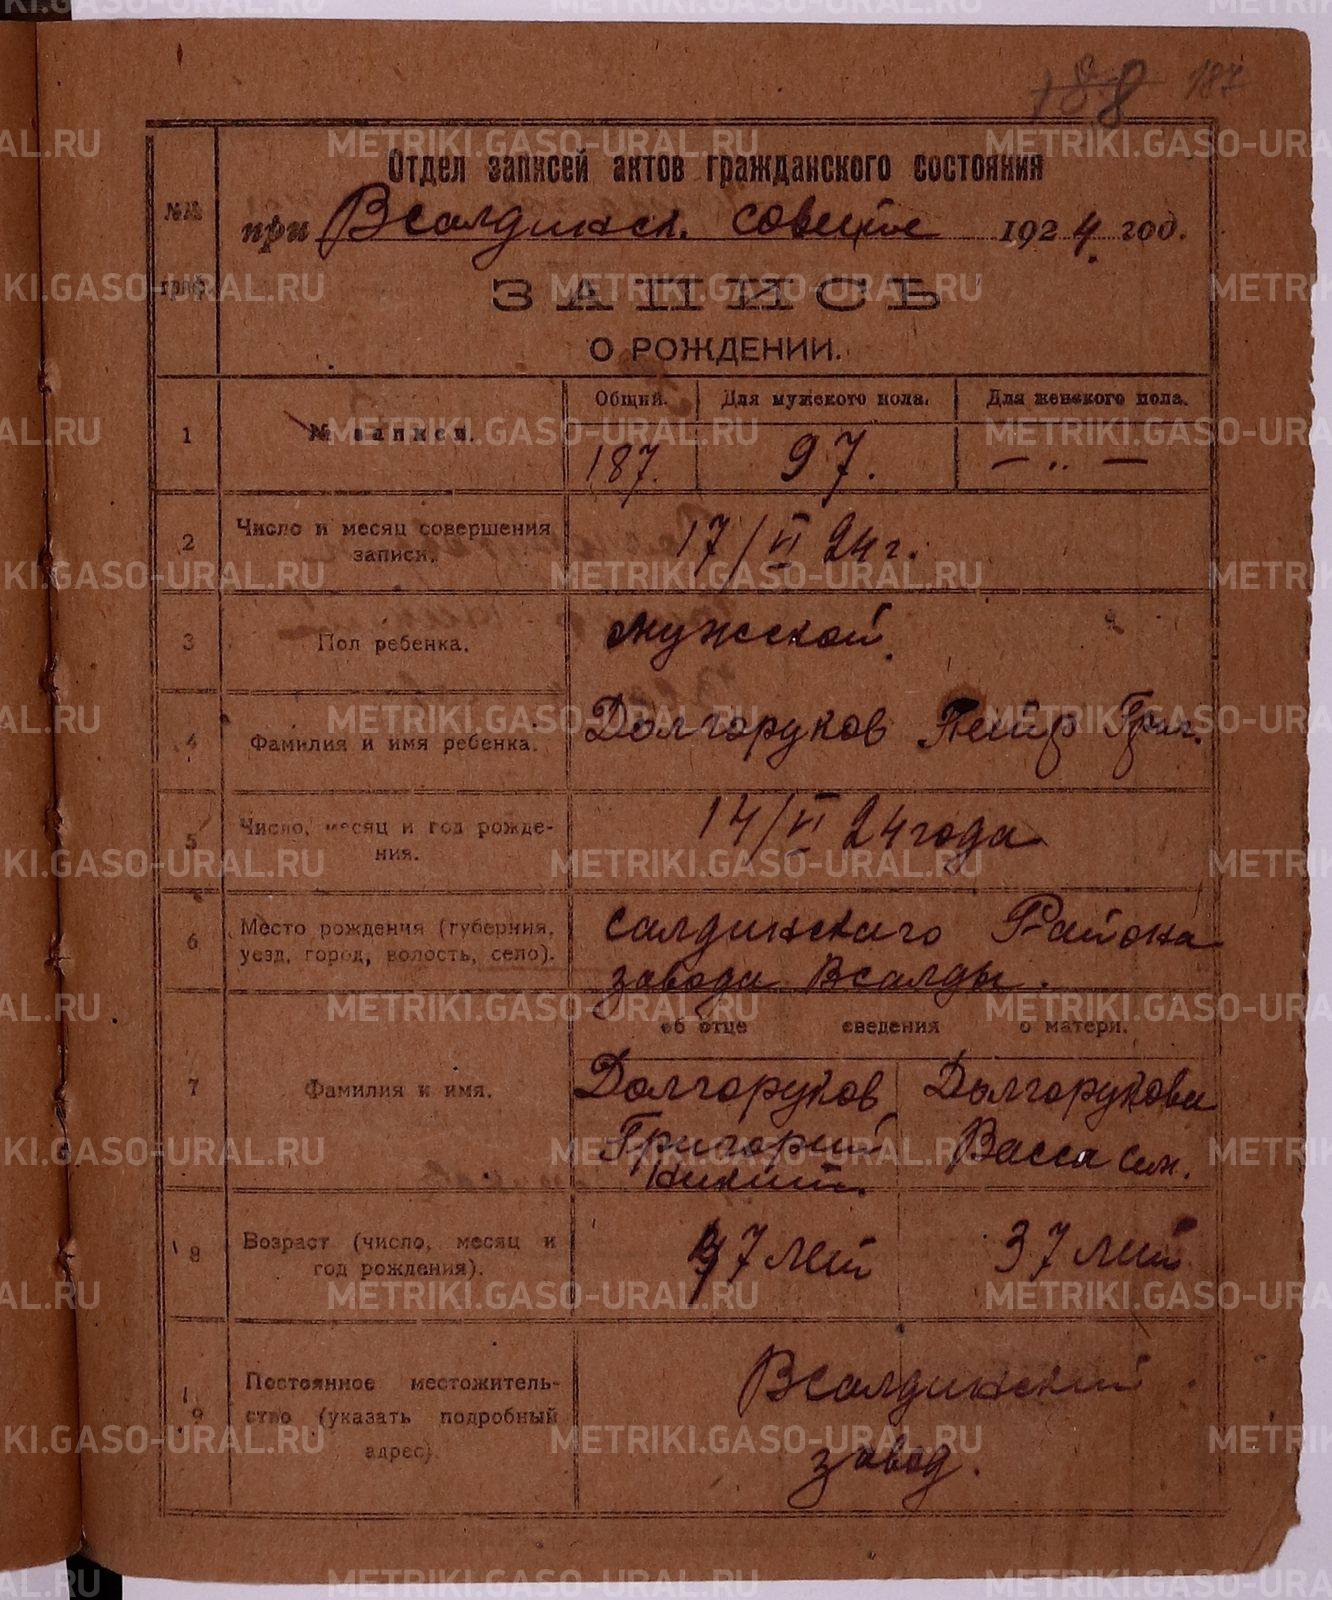 188 187
Отдел записей актов гражданского состояния
№№ граф.
при Всалдинск. совете 1924 год.
ЗАПИСЬ
О РОЖДЕНИИ.
1 № записи. Общий. Для мужского пола. Для женского пола.
187. 97. — „ —
2 Число и месяц совершения записи. 17/VI 24 г.
3 Пол ребенка. мужской.
4 Фамилия и имя ребенка. Долгоруков Петр Григ.
5 Число, месяц и год рожде-
ния. 14/VI 24 года
6 Место рождения (губерния, салдинскаго Района
уезд, город, волость, село). завода Всалды.
об отце сведения о матери.
7 Фамилия и имя. Долгоруков Долгорукова
Григорий Васса сем.
Никит.
8 Возраст (число, месяц и 37 лет
год рождения). 7 лет
9 Постоянное местожитель- Всалдинский
ство (указать подробный
адрес) завод.
METRIKI.GASO-URAL.RU